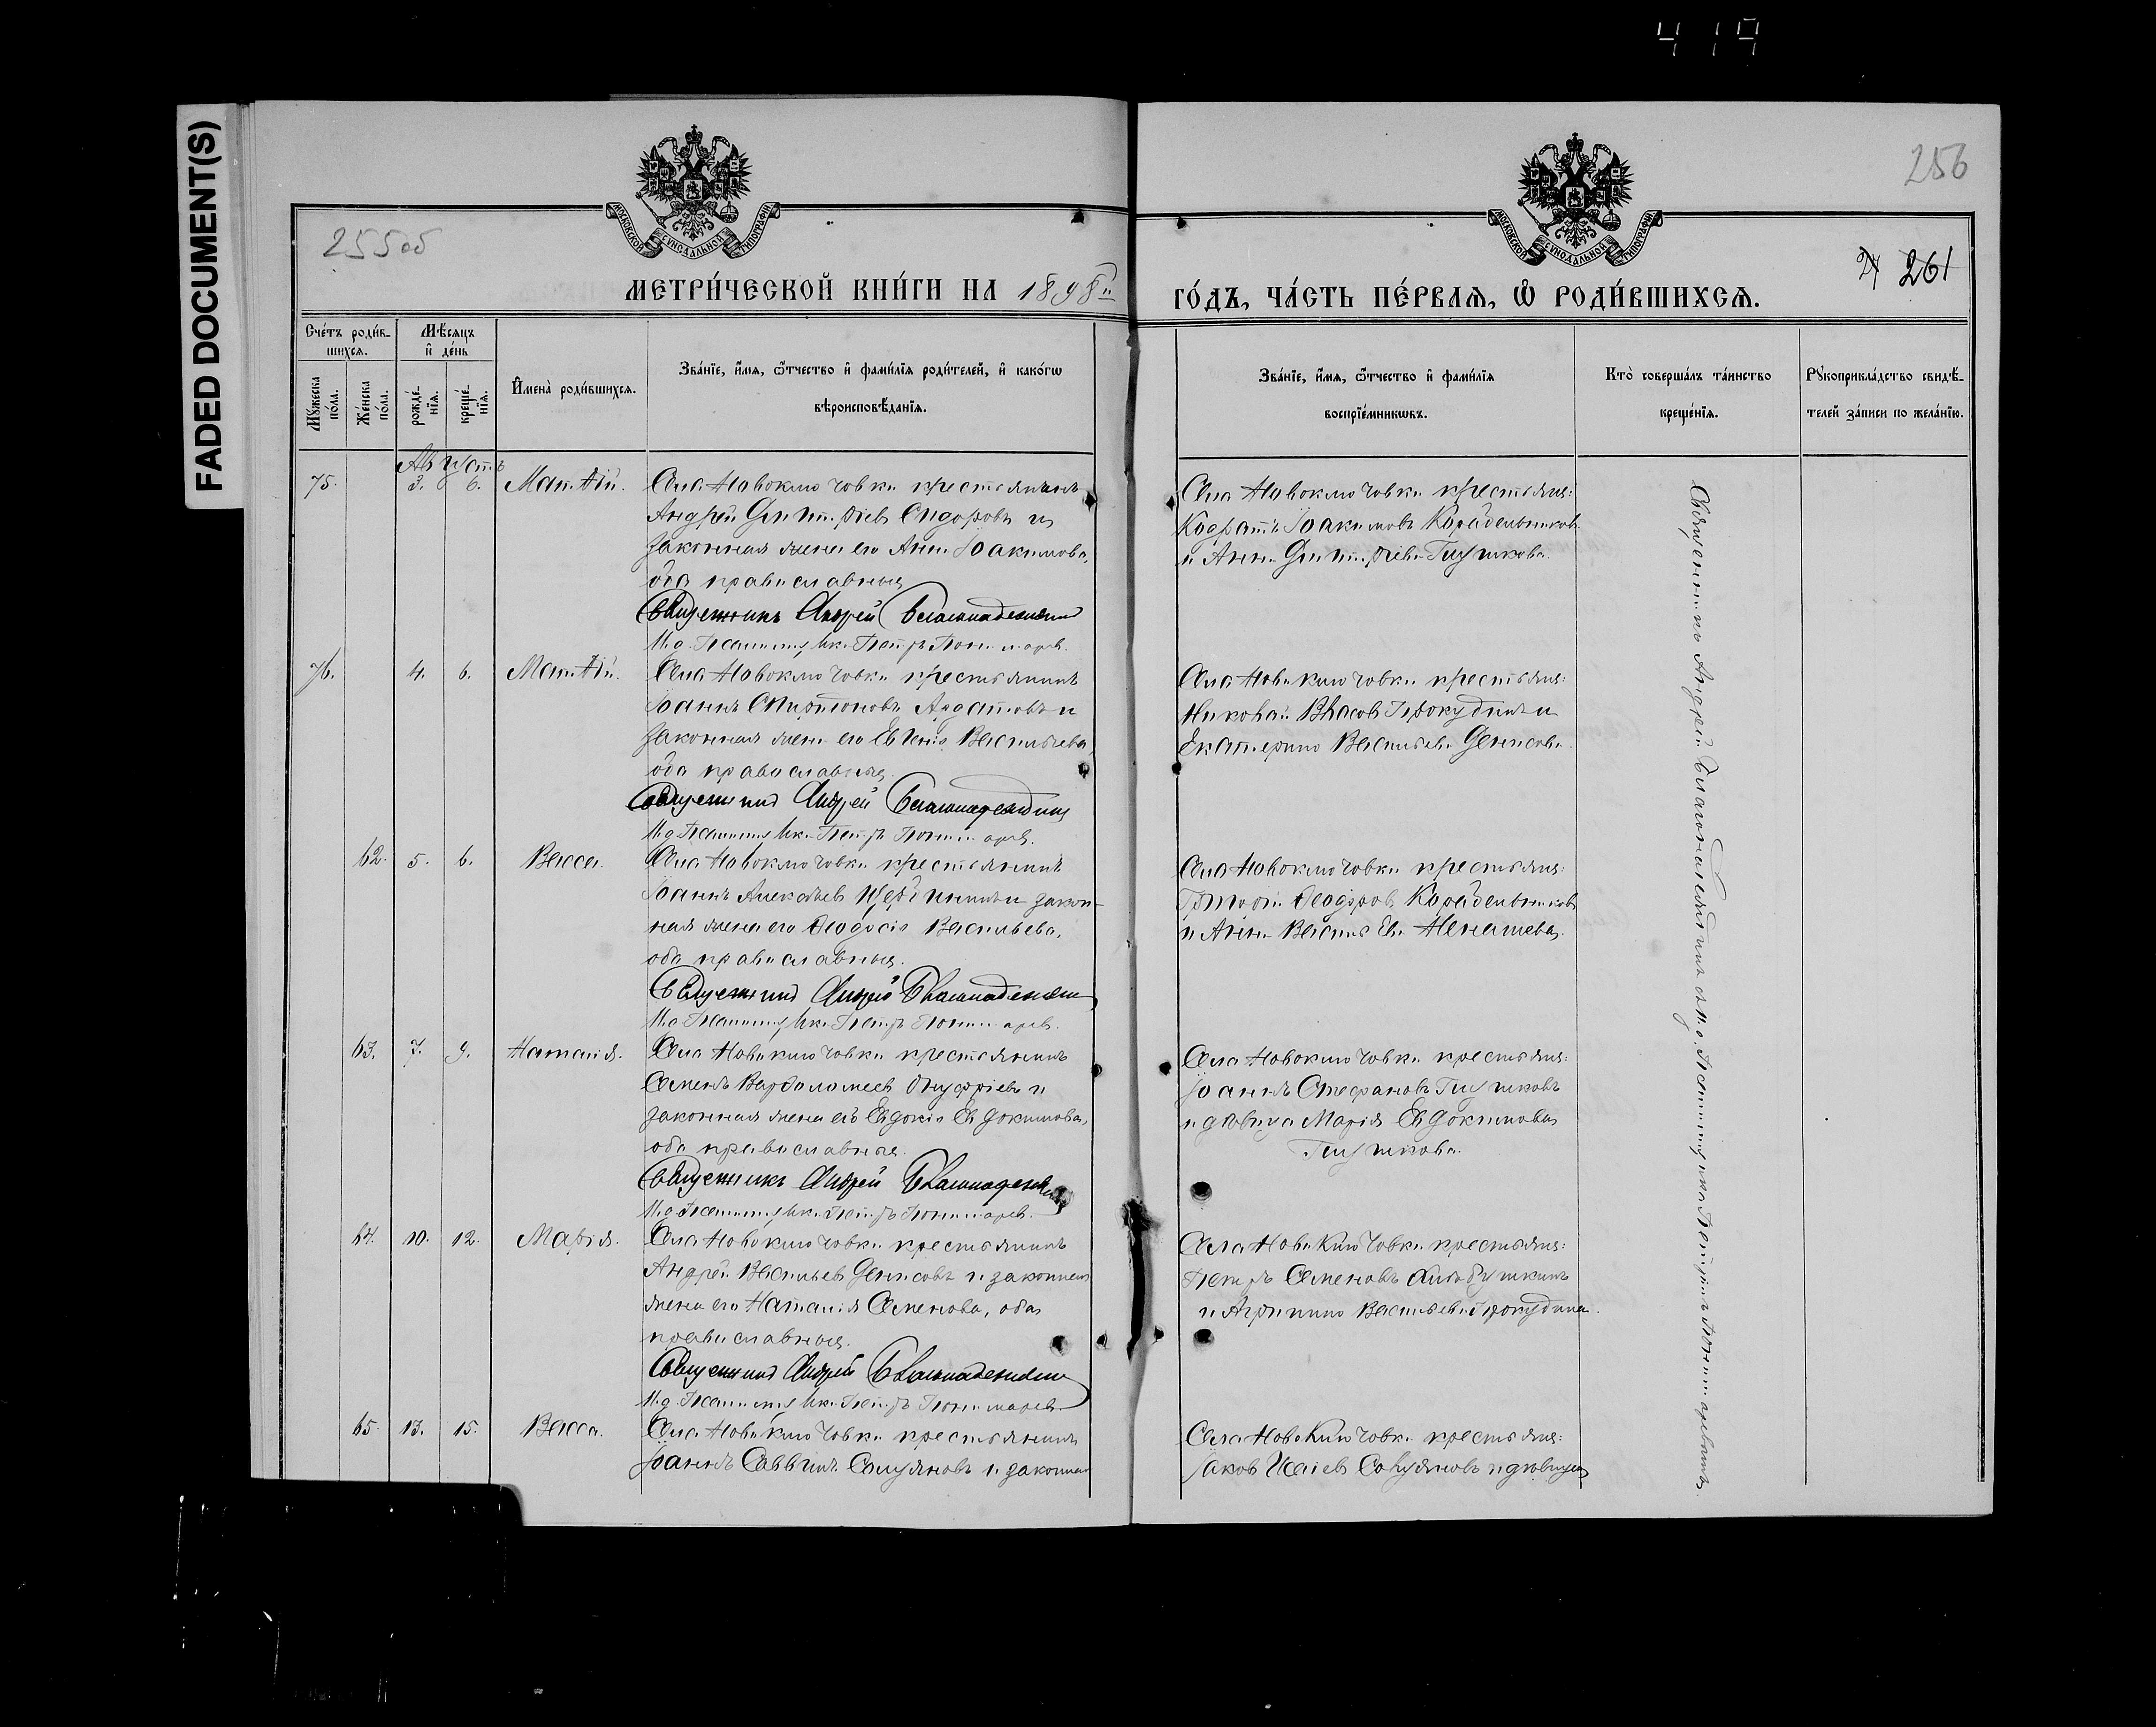 419
FADED DOCUMENT(S)
256
255об
261
МОСКОВСКОЙ СѴНОДАЛЬНОЙ ТИПОГРАФІИ
МОСКОВСКОЙ СѴНОДАЛЬНОЙ ТИПОГРАФІИ
МЕТРИ́ЧЕСКОЙ КНИ́ГИ НА 1898й
ГО́ДЪ, ЧА́СТЬ ПЕ́РВАѦ, Ѽ РОДИ́ВШИХСѦ.
Сче́тъ роди́в-
шихсѧ.
Мѣ́сѧцъ
и҆ де́нь
Мꙋ́жеска
по́ла.
Же́нска
по́ла.
рожде́-
нїѧ.
креще́-
нїѧ.
И҆мена̀ роди́вшихсѧ.
Зва́нїе, и҆́мѧ, ѻ҆́тчество и҆ фами́лїѧ роди́телей, и҆ како́гѡ
вѣроисповѣ́данїѧ.
Зва́нїе, и҆́мѧ, ѻ҆́тчество и҆ фами́лїѧ
воспрїе́мникѡвъ.
Кто̀ соверша́лъ та́инство
креще́нїѧ.
Рꙋкоприкла́дство свидѣ́-
телей за́писи по жела́нїю.
Августъ
75. 3. 6. Матѳій. Села Новоключовки крестьянинъ
Андрей Димитріевъ Сидоровъ и
законная жена его Анна Іоакимова,
оба православныя
Священникъ Андрей Благонадеждинъ
И.д. Псаломщика Петръ Пономаревъ.
Села Новоключовки крестьяне:
Кодратъ Іоакимовъ Карабельниковъ
и Анна Димитріева Глушкова.
76. 4. 6. Матѳій. Села Новоключовки крестьянинъ
Іоаннъ Спиридоновъ Ардатовъ и
законная жена его Евгенія Васильева,
оба православныя.
Священникъ Андрей Благонадеждинъ
И.д. Псаломщика Петръ Пономаревъ.
Села Новоключовки крестьяне:
Николай Власовъ Прокудинъ и
Екатерина Васильева Денисова.
62. 5. 6. Васса. Села Новоключовки крестьянинъ
Іоаннъ Алексѣевъ и закон-
ная жена его Ѳеодосія Васильева,
оба православныя.
Священникъ Андрей Благонадеждинъ
И.д. Псаломщика Петръ Пономаревъ.
Села Новоключовки крестьяне:
Ѳеодоровъ Карабельниковъ
и Анна Васильева Ненашева.
63. 7. 9. Наталія. Села Новоключовки крестьянинъ
Семенъ Варѳоломеевъ Онуфріевъ и
законная жена его Евдокія Евдокимова,
оба православныя.
Священникъ Андрей Благонадеждинъ
И.д. Псаломщика Петръ Пономаревъ.
Села Новоключовки крестьяне:
Іоаннъ Стефановъ Глушковъ
и дѣвица Марія Евдокимова
Глушкова.
64. 10. 12. Марія. Села Новоключовки крестьянинъ
Андрей Васильевъ Денисовъ и законная
жена его Наталія Семенова, оба
православныя.
Священникъ Андрей Благонадеждинъ
И.д. Псаломщика Петръ Пономаревъ.
Села Новоключовки крестьяне:
Петръ Семеновъ
и Агрипина Васильева Прокудина.
65. 13. 15. Васса. Села Новоключовки крестьянинъ
Іоаннъ Саввинъ и законная
Села Новоключовки крестьяне:
Іаковъ Исаіевъ и дѣвица
Священникъ Андрей Благонадеждинъ съ И.д. Псаломщика Петромъ Пономаревымъ.